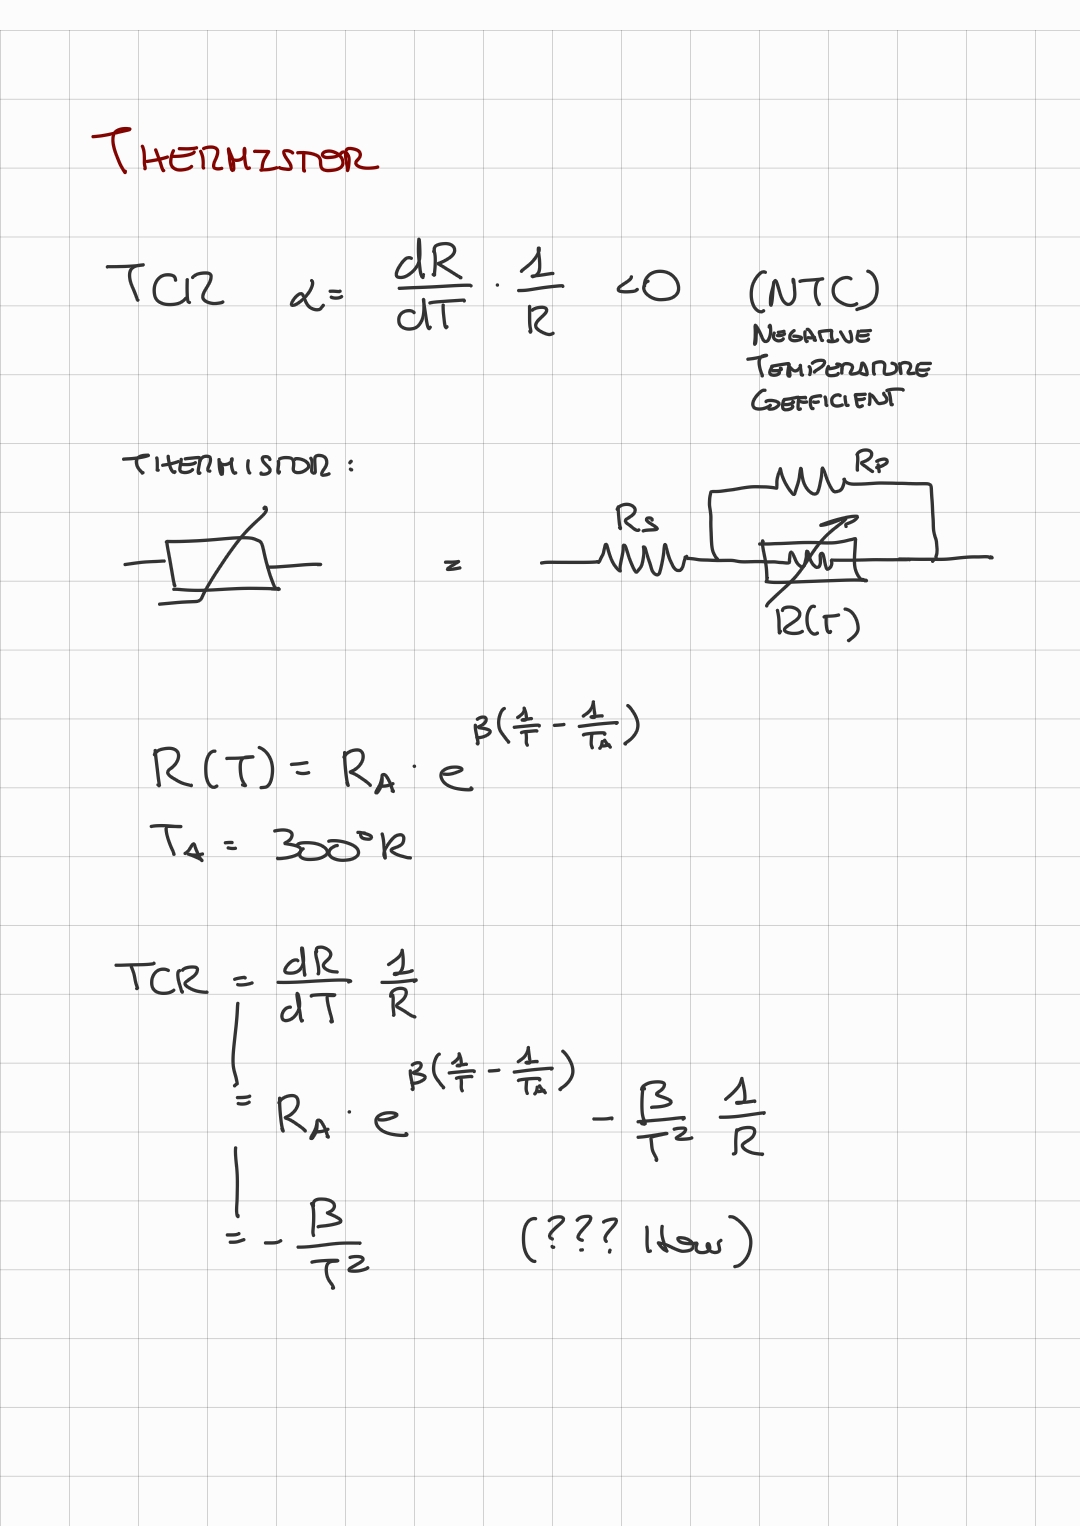 THERMISTOR
TCR α = dR/dT · 1/R <0 (NTC)
NEGATIVE
TEMPERATURE
COEFFICIENT
THERMISTOR :
Rs
Rp
=
R(T)
R(T) = R_A · e^β(1/T - 1/T_A)
T_A = 300°K
TCR = dR/dT 1/R
= R_A · e^β(1/T - 1/T_A) - β/T² 1/R
= - β/T² (??? How)